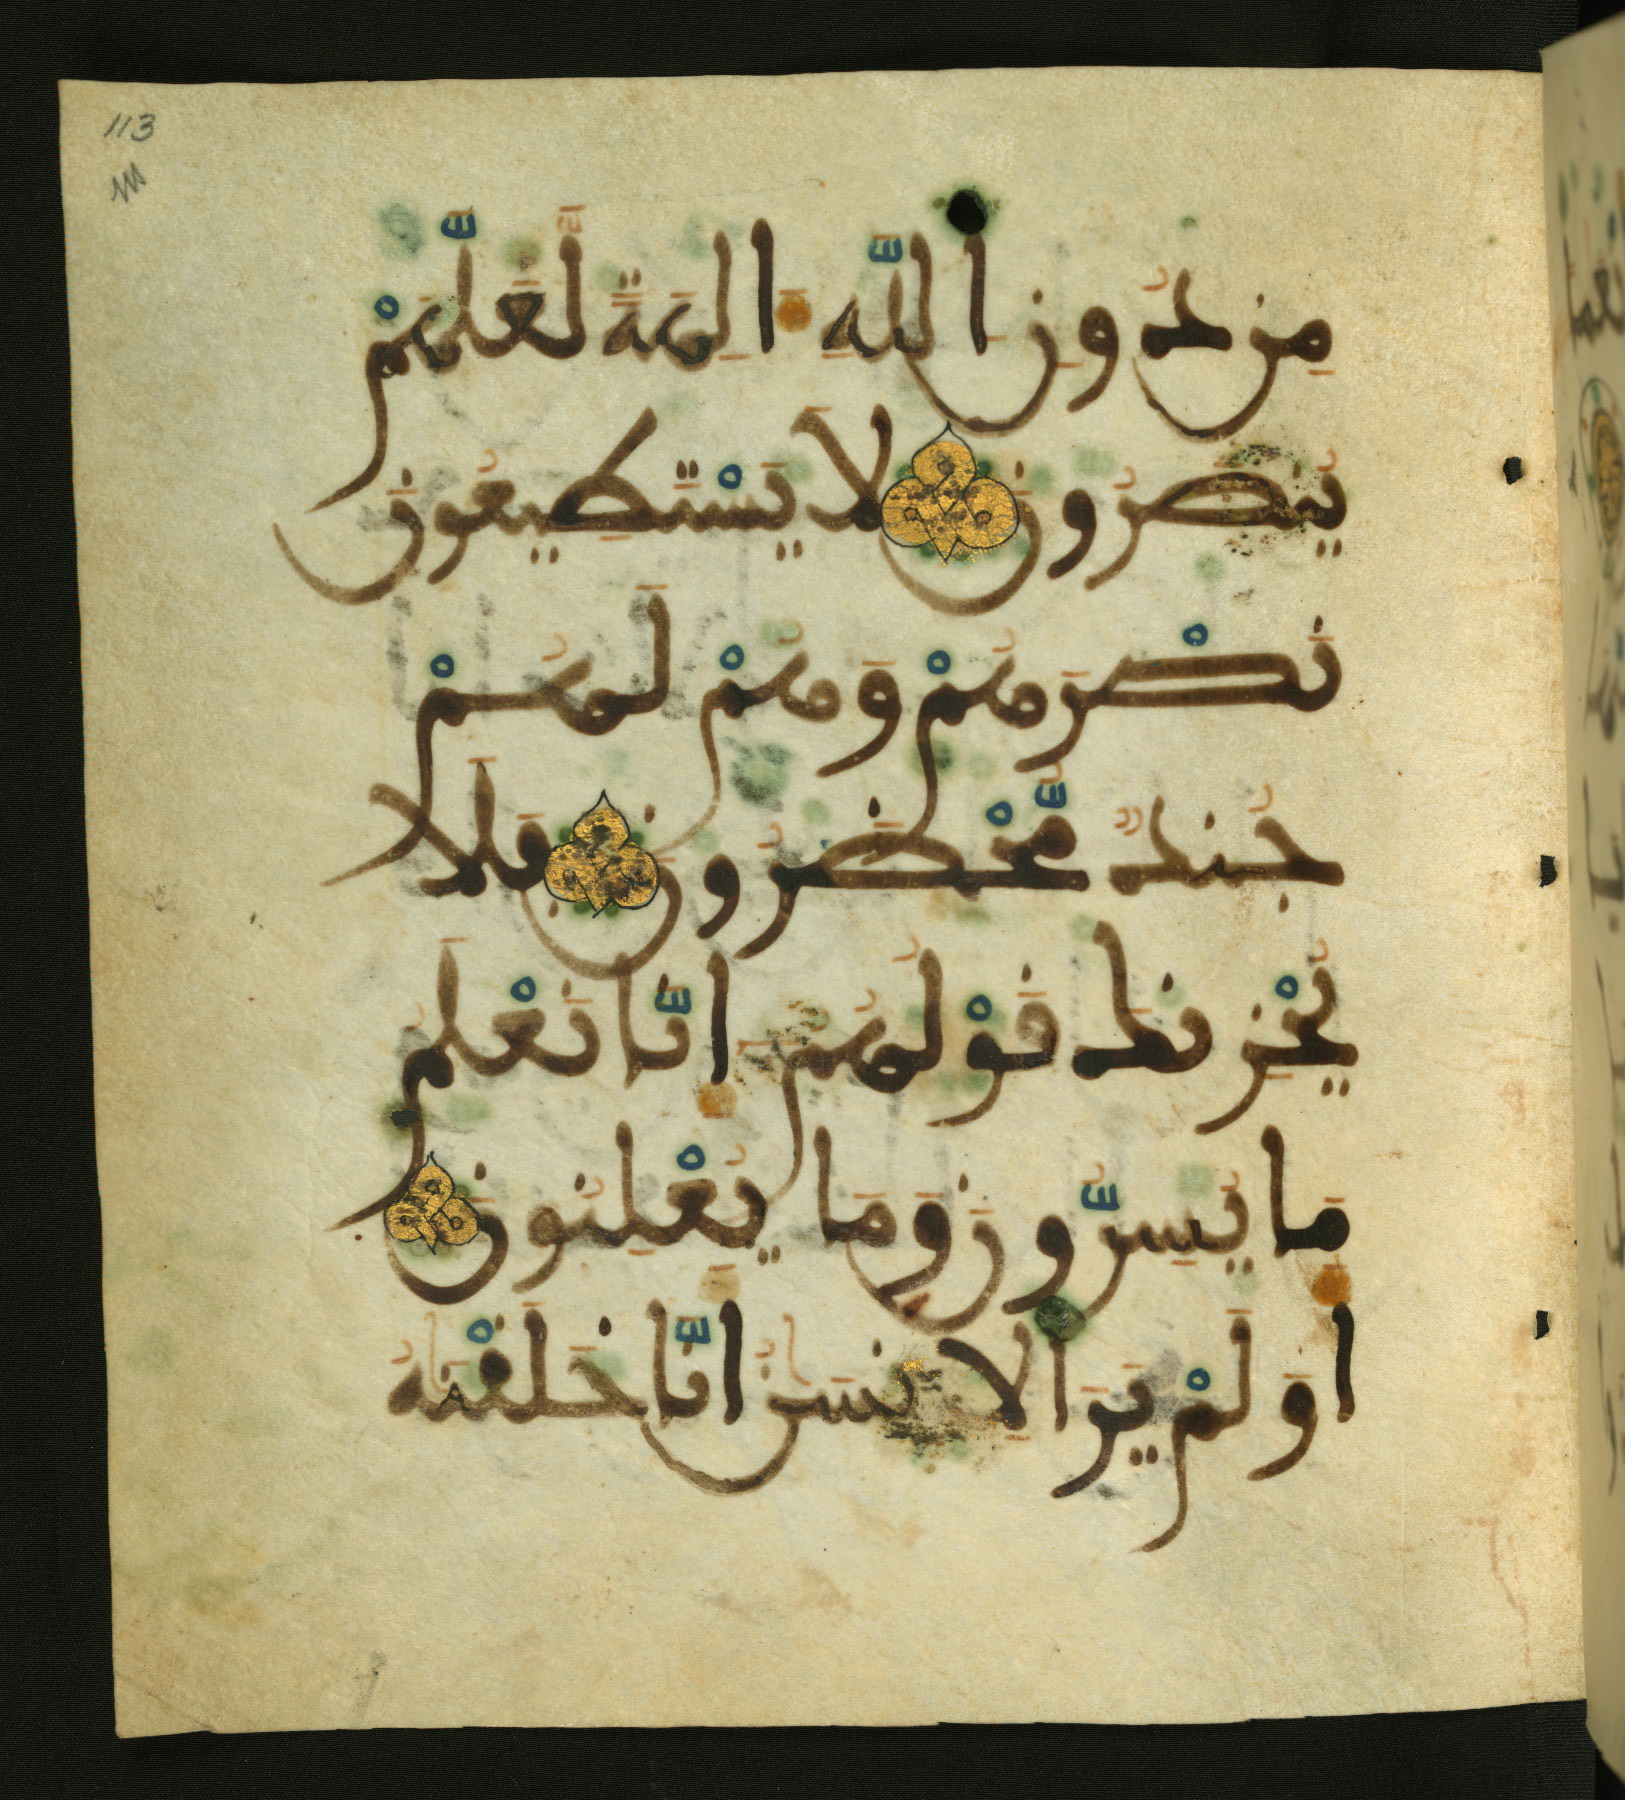 113
مِن دُونِ اللَّهِ ءَالِهَةً لَعَلَّهُمْ
يُنصَرُونَ لَا يَسْتَطِيعُونَ
نَصْرَهُمْ وَهُمْ لَهُمْ
جُندٌ مُّحْضَرُونَ فَلَا
يُحْزِنكَ قَوْلُهُمُ إِنَّا نَعْلَمُ
مَا يُسِرُّونَ وَمَا يُعْلِنُونَ
أَوَلَمْ يَرَ الْإِنسَٰنُ أَنَّا خَلَقْنَٰهُ